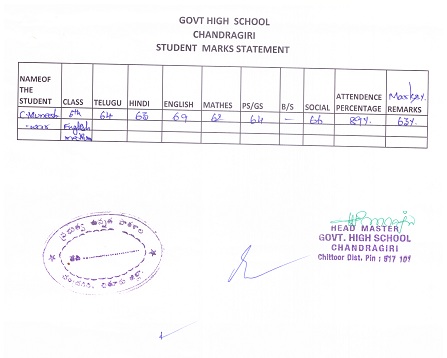 GOVT HIGH SCHOOL
CHANDRAGIRI
STUDENT MARKS STATEMENT
NAMEOF THE STUDENT CLASS TELUGU HINDI ENGLISH MATHES PS/GS B/S SOCIAL ATTENDENCE PERCENTAGE Marks% REMARKS
C.Munesh 6th 64 65 69 62 64 – 66 89% 63%
English
medium
HEAD MASTER
GOVT. HIGH SCHOOL
CHANDRAGIRI
Chittoor Dist. Pin : 517 101